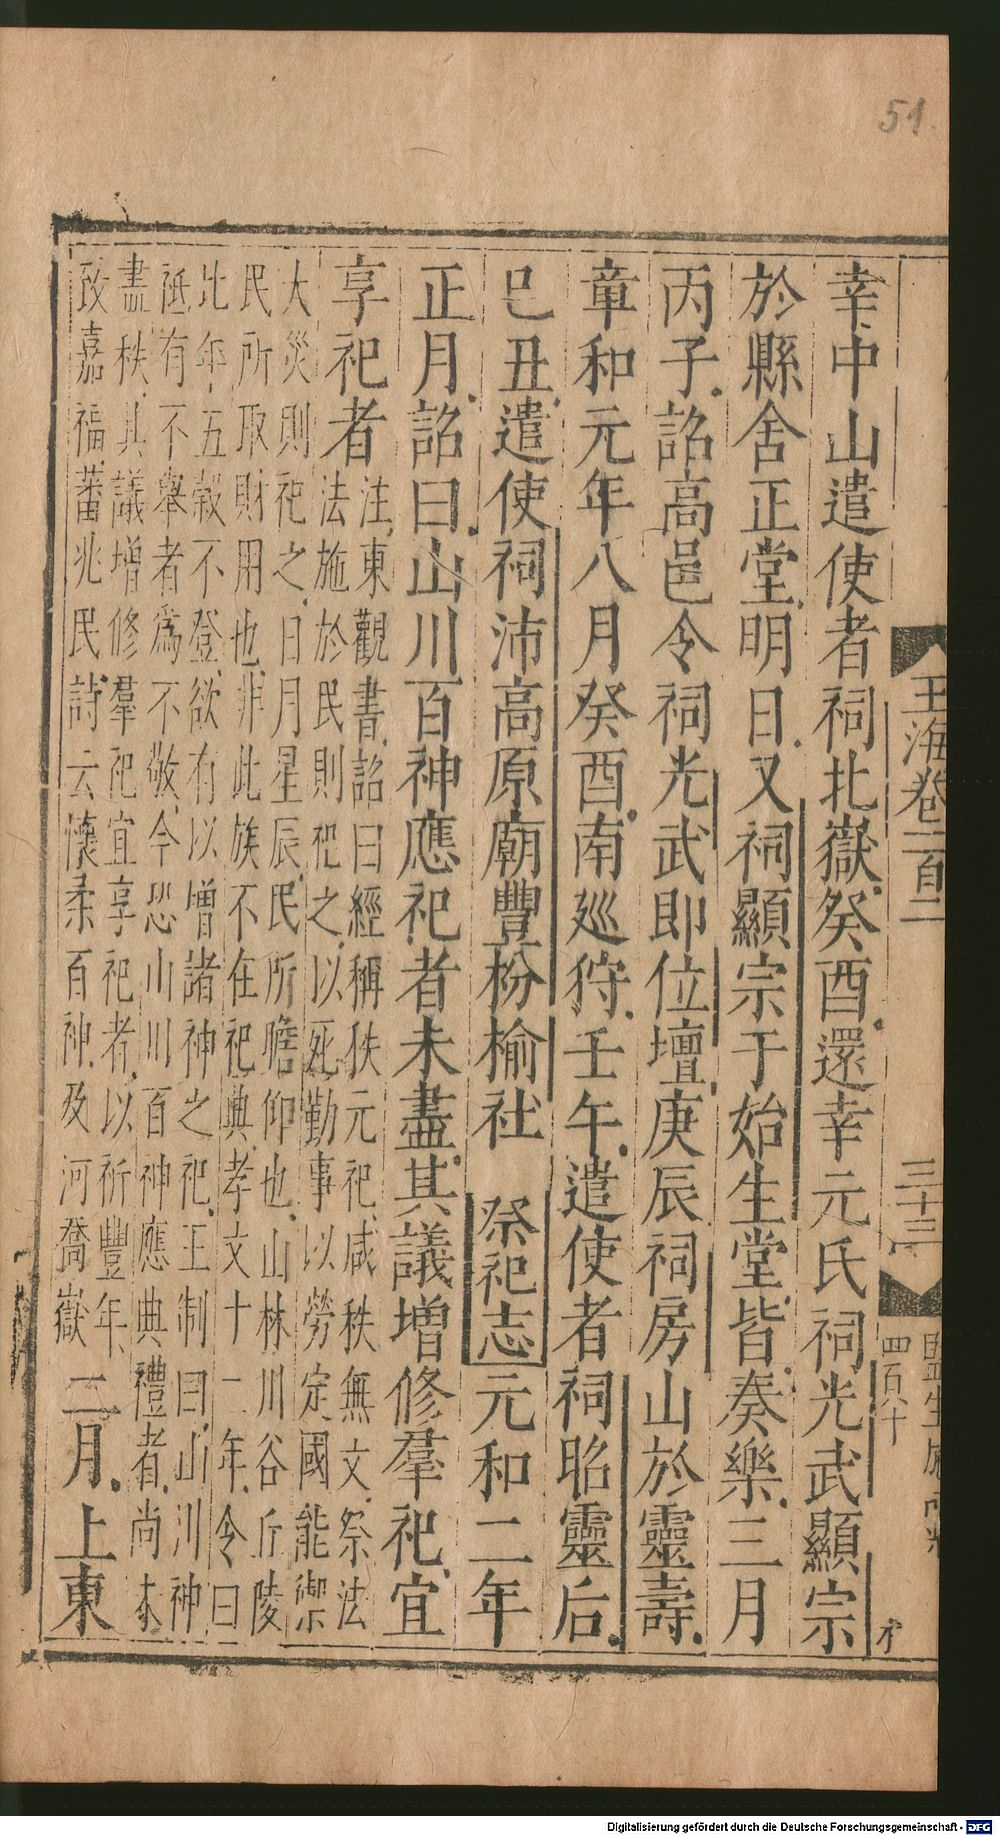 51
玉海卷一百二
三十三
四百六十
幸中山遣使者祠北嶽癸酉還幸元氏祠光武顯宗
於縣舍正堂明日又祠顯宗于始生堂皆奏樂三月
丙子詔高邑令祠光武即位壇庚辰祠房山於靈壽
章和元年八月癸酉南廵狩壬午遣使者祠昭靈后
巳丑遣使祠沛高原廟豐枌榆社 祭祀志元和二年
正月詔曰山川百神應祀者未盡其議增修羣祀宜
享祀者注東觀書詔曰經稱秩元祀咸秩無文祭法
法施於民則祀之以死勤事以勞定國能禦
大災則祀之日月星辰民所瞻仰也山林川谷丘陵
民所取財用也非此族不在祀典孝文十二年令曰
比年五穀不登欲有以增諸神之祀王制曰山川神
祗有不舉者爲不敬今恐山川百神應典禮者尚未
盡秩其議增修羣祀宜享祀者以祈豐年
致嘉福蕃兆民詩云懷柔百神及河喬嶽 二月上東
Digitalisierung gefördert durch die Deutsche Forschungsgemeinschaft - DFG